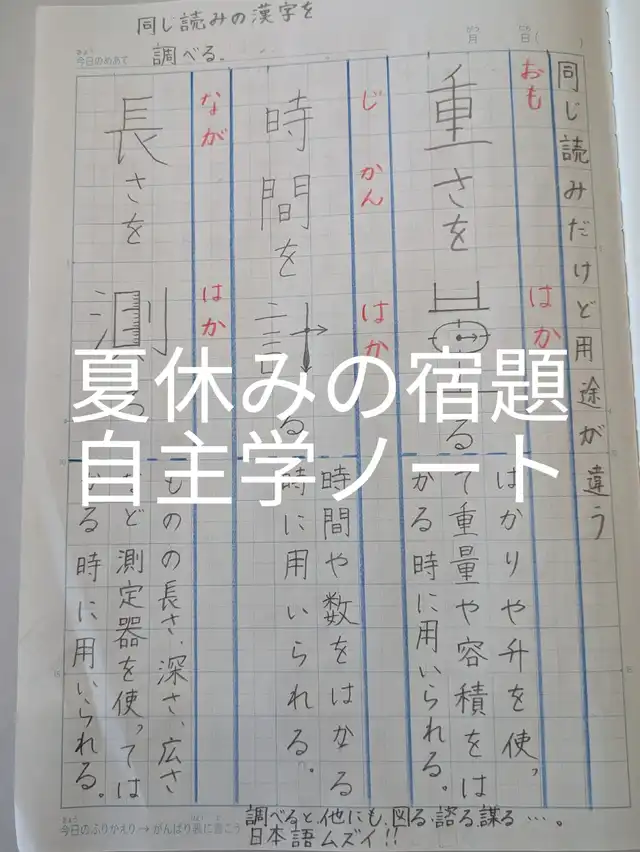 同じ読みの漢字を
調べる。
きょう
今日のめあて
がつ にち
月 日( )
同じ読みだけど用途が違う
おも はか
重さを る
はかりや升を使っ
て重量や容積をは
かる時に用いられる。
じかん はか
時間を計る
時間や数をはかる
時に用いられる。
なが はか
長さを測る
ものの長さ、深さ、広さ
など測定器を使っては
かる時に用いられる。
夏休みの宿題
自主学ノート
きょう
今日のふりかえり→がんばり表に書こう
調べると、他にも、図る、諮る、謀る…。
日本語ムズイ!!